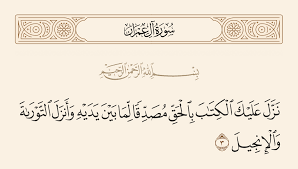 سُورَةُ آلِ عِمۡرَانَ
بِسۡمِ ٱللَّهِ ٱلرَّحۡمَٰنِ ٱلرَّحِيمِ
نَزَّلَ عَلَيۡكَ ٱلۡكِتَٰبَ بِٱلۡحَقِّ مُصَدِّقٗا لِّمَا بَيۡنَ يَدَيۡهِ وَأَنزَلَ ٱلتَّوۡرَىٰةَ
وَٱلۡإِنجِيلَ ٣